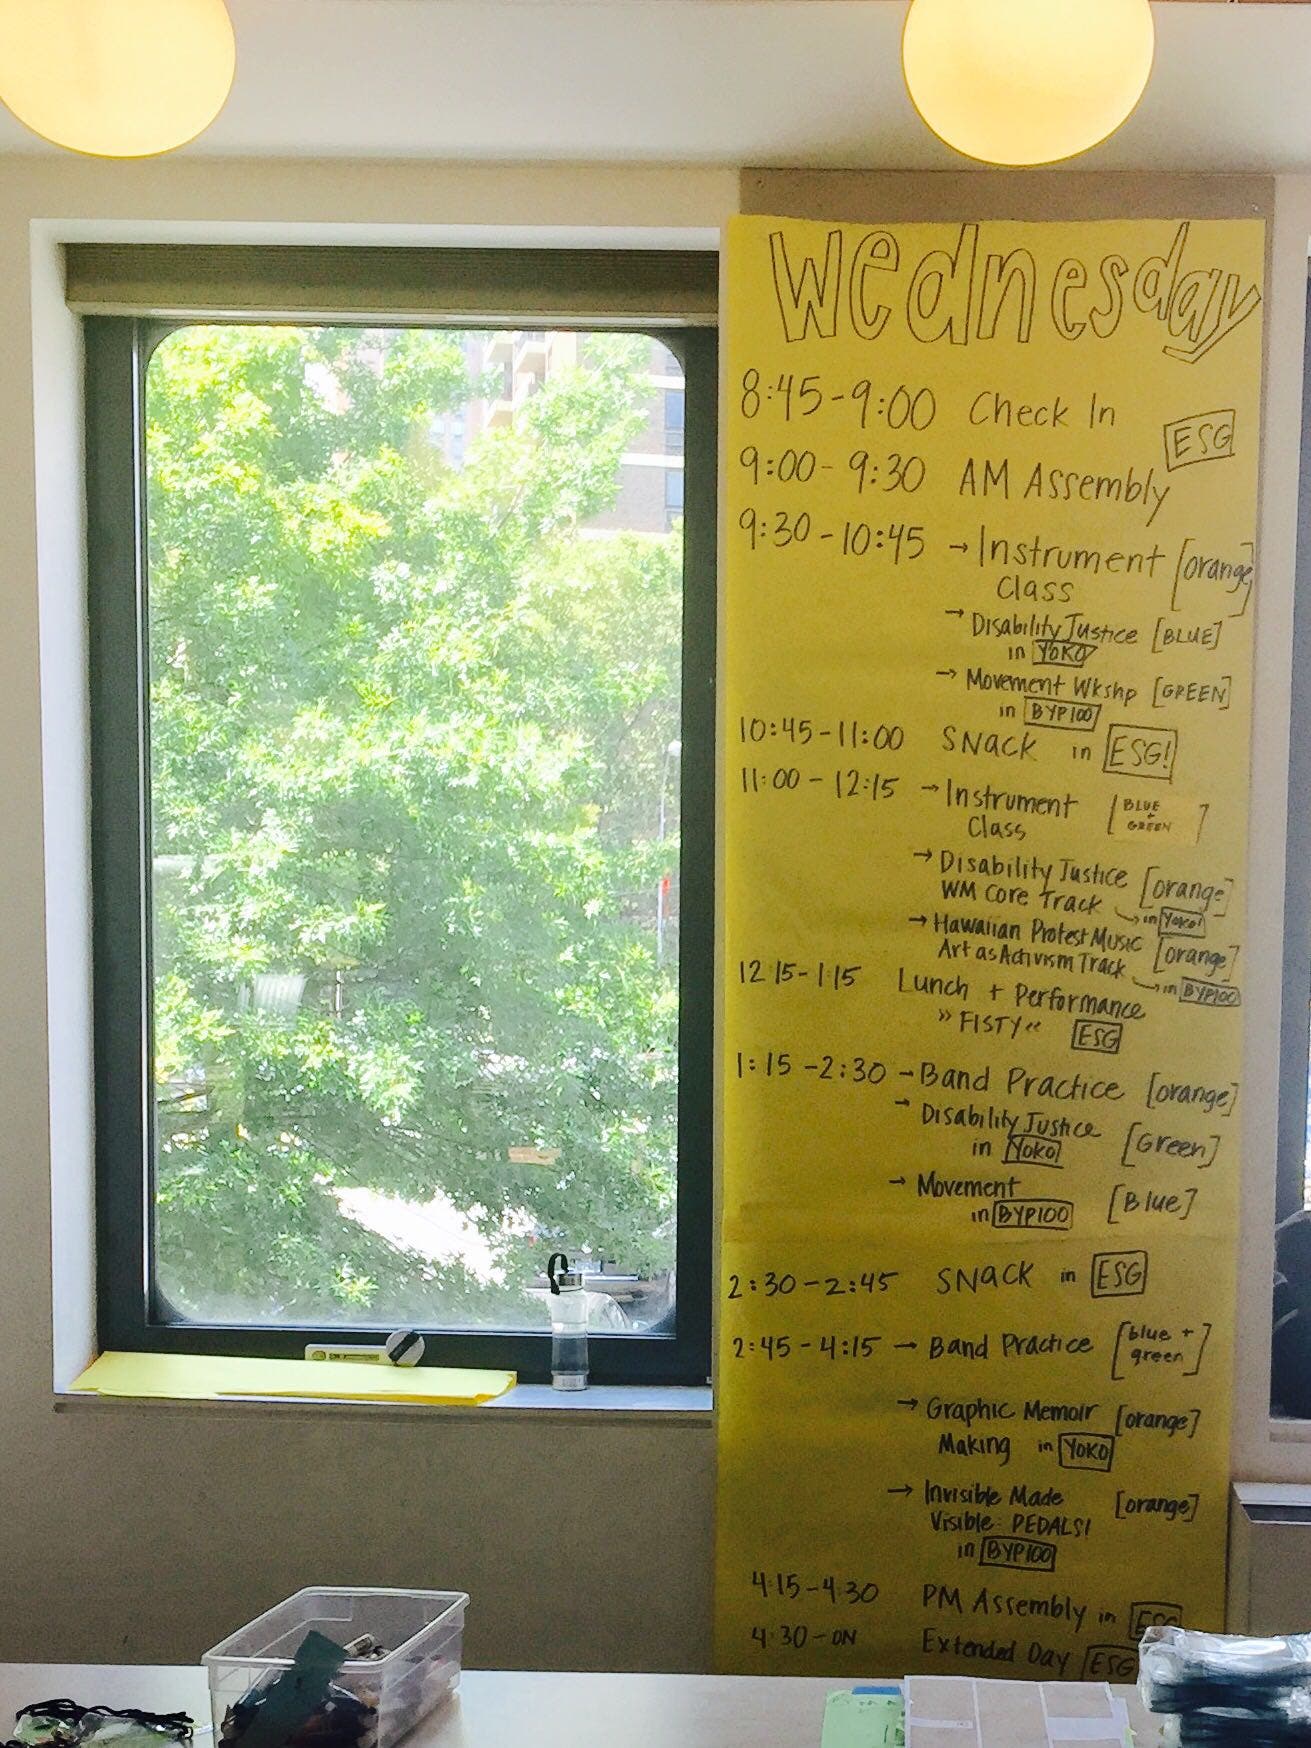 Wednesday
8:45-9:00 Check In
9:00-9:30 AM Assembly [ESG]
9:30-10:45 → Instrument [orange]
Class
→ Disability Justice [BLUE]
in YOKO
→ Movement Wkshp [GREEN]
in BYP100
10:45-11:00 SNACK in ESG!
11:00-12:15 → Instrument [BLUE + GREEN]
Class
→ Disability Justice [orange]
WM Core Track → in Yoko!
→ Hawaiian Protest Music [orange]
Art as Activism Track → in BYP100
12:15-1:15 Lunch + Performance
»FISTY« ESG
1:15-2:30 → Band Practice [orange]
→ Disability Justice [Green]
in YOKO
→ Movement [Blue]
in BYP100
2:30-2:45 SNACK in ESG
2:45-4:15 → Band Practice [blue + green]
→ Graphic Memoir [orange]
Making in YOKO
→ Invisible Made [orange]
Visible: PEDALS!
in BYP100
4:15-4:30 PM Assembly in ESG
4:30-ON Extended Day ESG